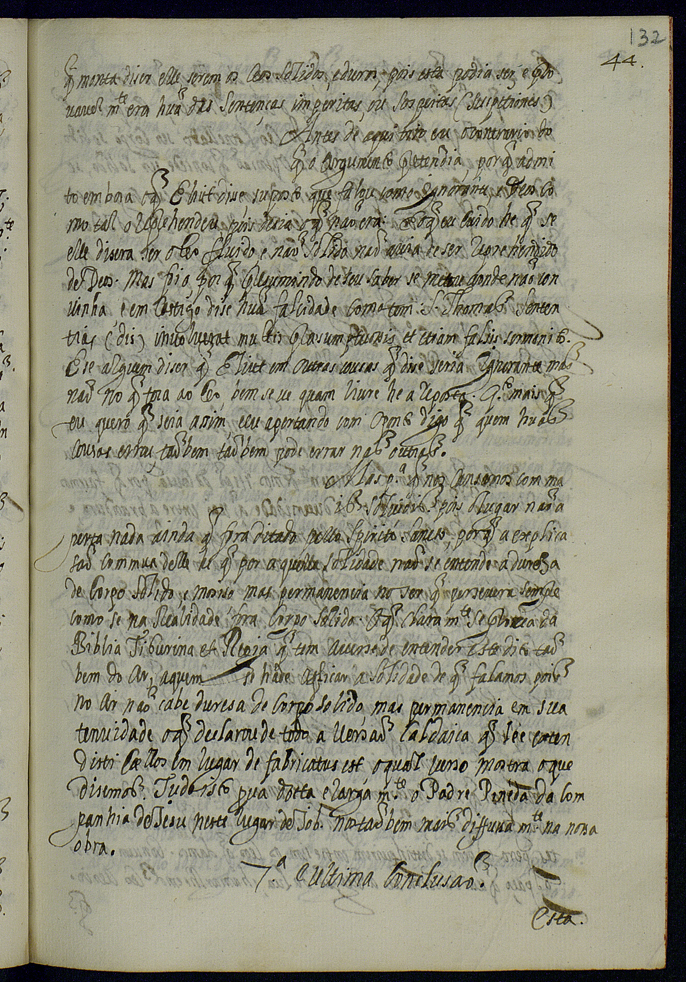 132
44.
q̃ monta dizer elle serem os Ceos solidos, e duros, pois esta podia ser, e pro
vavel mte era hũa das sentenças imperitas, ou suspeitas (suspitiones)
Antes de aqui tiro eu o contrario do
q̃ o argumento pretendia, porq̃ admi
to embora q̃ Eliut disse suposto que falou como ignorante e Deos co
mo tal o reprehendeu, pois dizia o q̃ não era. Porq̃ eu cuido he q̃ se
elle dissera ser o Ceo fluido e não solido não avia de ser reprehendido
de Deos. Mas foi o, por q̃ presumindo de seu saber se meteu aonde não con
vinha, e em castigo disse hũa falcidade como tem S. Thomas: senten
tias (diz) involuerat multis praesumptuosis, et etiam falsis sermonibs.
E se alguem diser q̃ Eliut em outras cousas q̃ disse seria ignorante mas
não no q̃ toca ao Ceo bem se ve quam livre he a reposta. Qto mais q̃
eu quero q̃ seia assim, e eu apertando com digo q̃ quem hũas
cousas errou tambem tambem pode errar nas outras.
q̃ nos cansemos com ma
is solidis, pois o lugar não a
perta nada ainda q̃ fora ditado pello Spirito Sancto, porq̃ a explica
são commua delle he q̃ por aquella solidade não se entende a dureza
de corpo solido, e mocisso mas permanencia no ser q̃ persevera sempre
como se na realidade fora corpo solido. O q̃ clara mte se prova da
Biblia Tigurina et Regia q̃ tem averse de entender este dito tam
bem do Ar, aquem se hade aplicar a solidade de q̃ falamos, pois
no Ar não cabe duresa de corpo solido, mas permanencia em sua
tenuidade o q̃ declarou de todo a versão Caldaica q̃ lee exten
disti Cœllos em lugar de fabricatus est o qual verso mostra o que
disemos. Tudo isto prova dotta e larga mte o Padre Pineda da Com
panhia de Jesu neste lugar de Job. nos tambem mais diffusa mte na nossa
obra.
7ª e ultima Conclusão.
Esta.